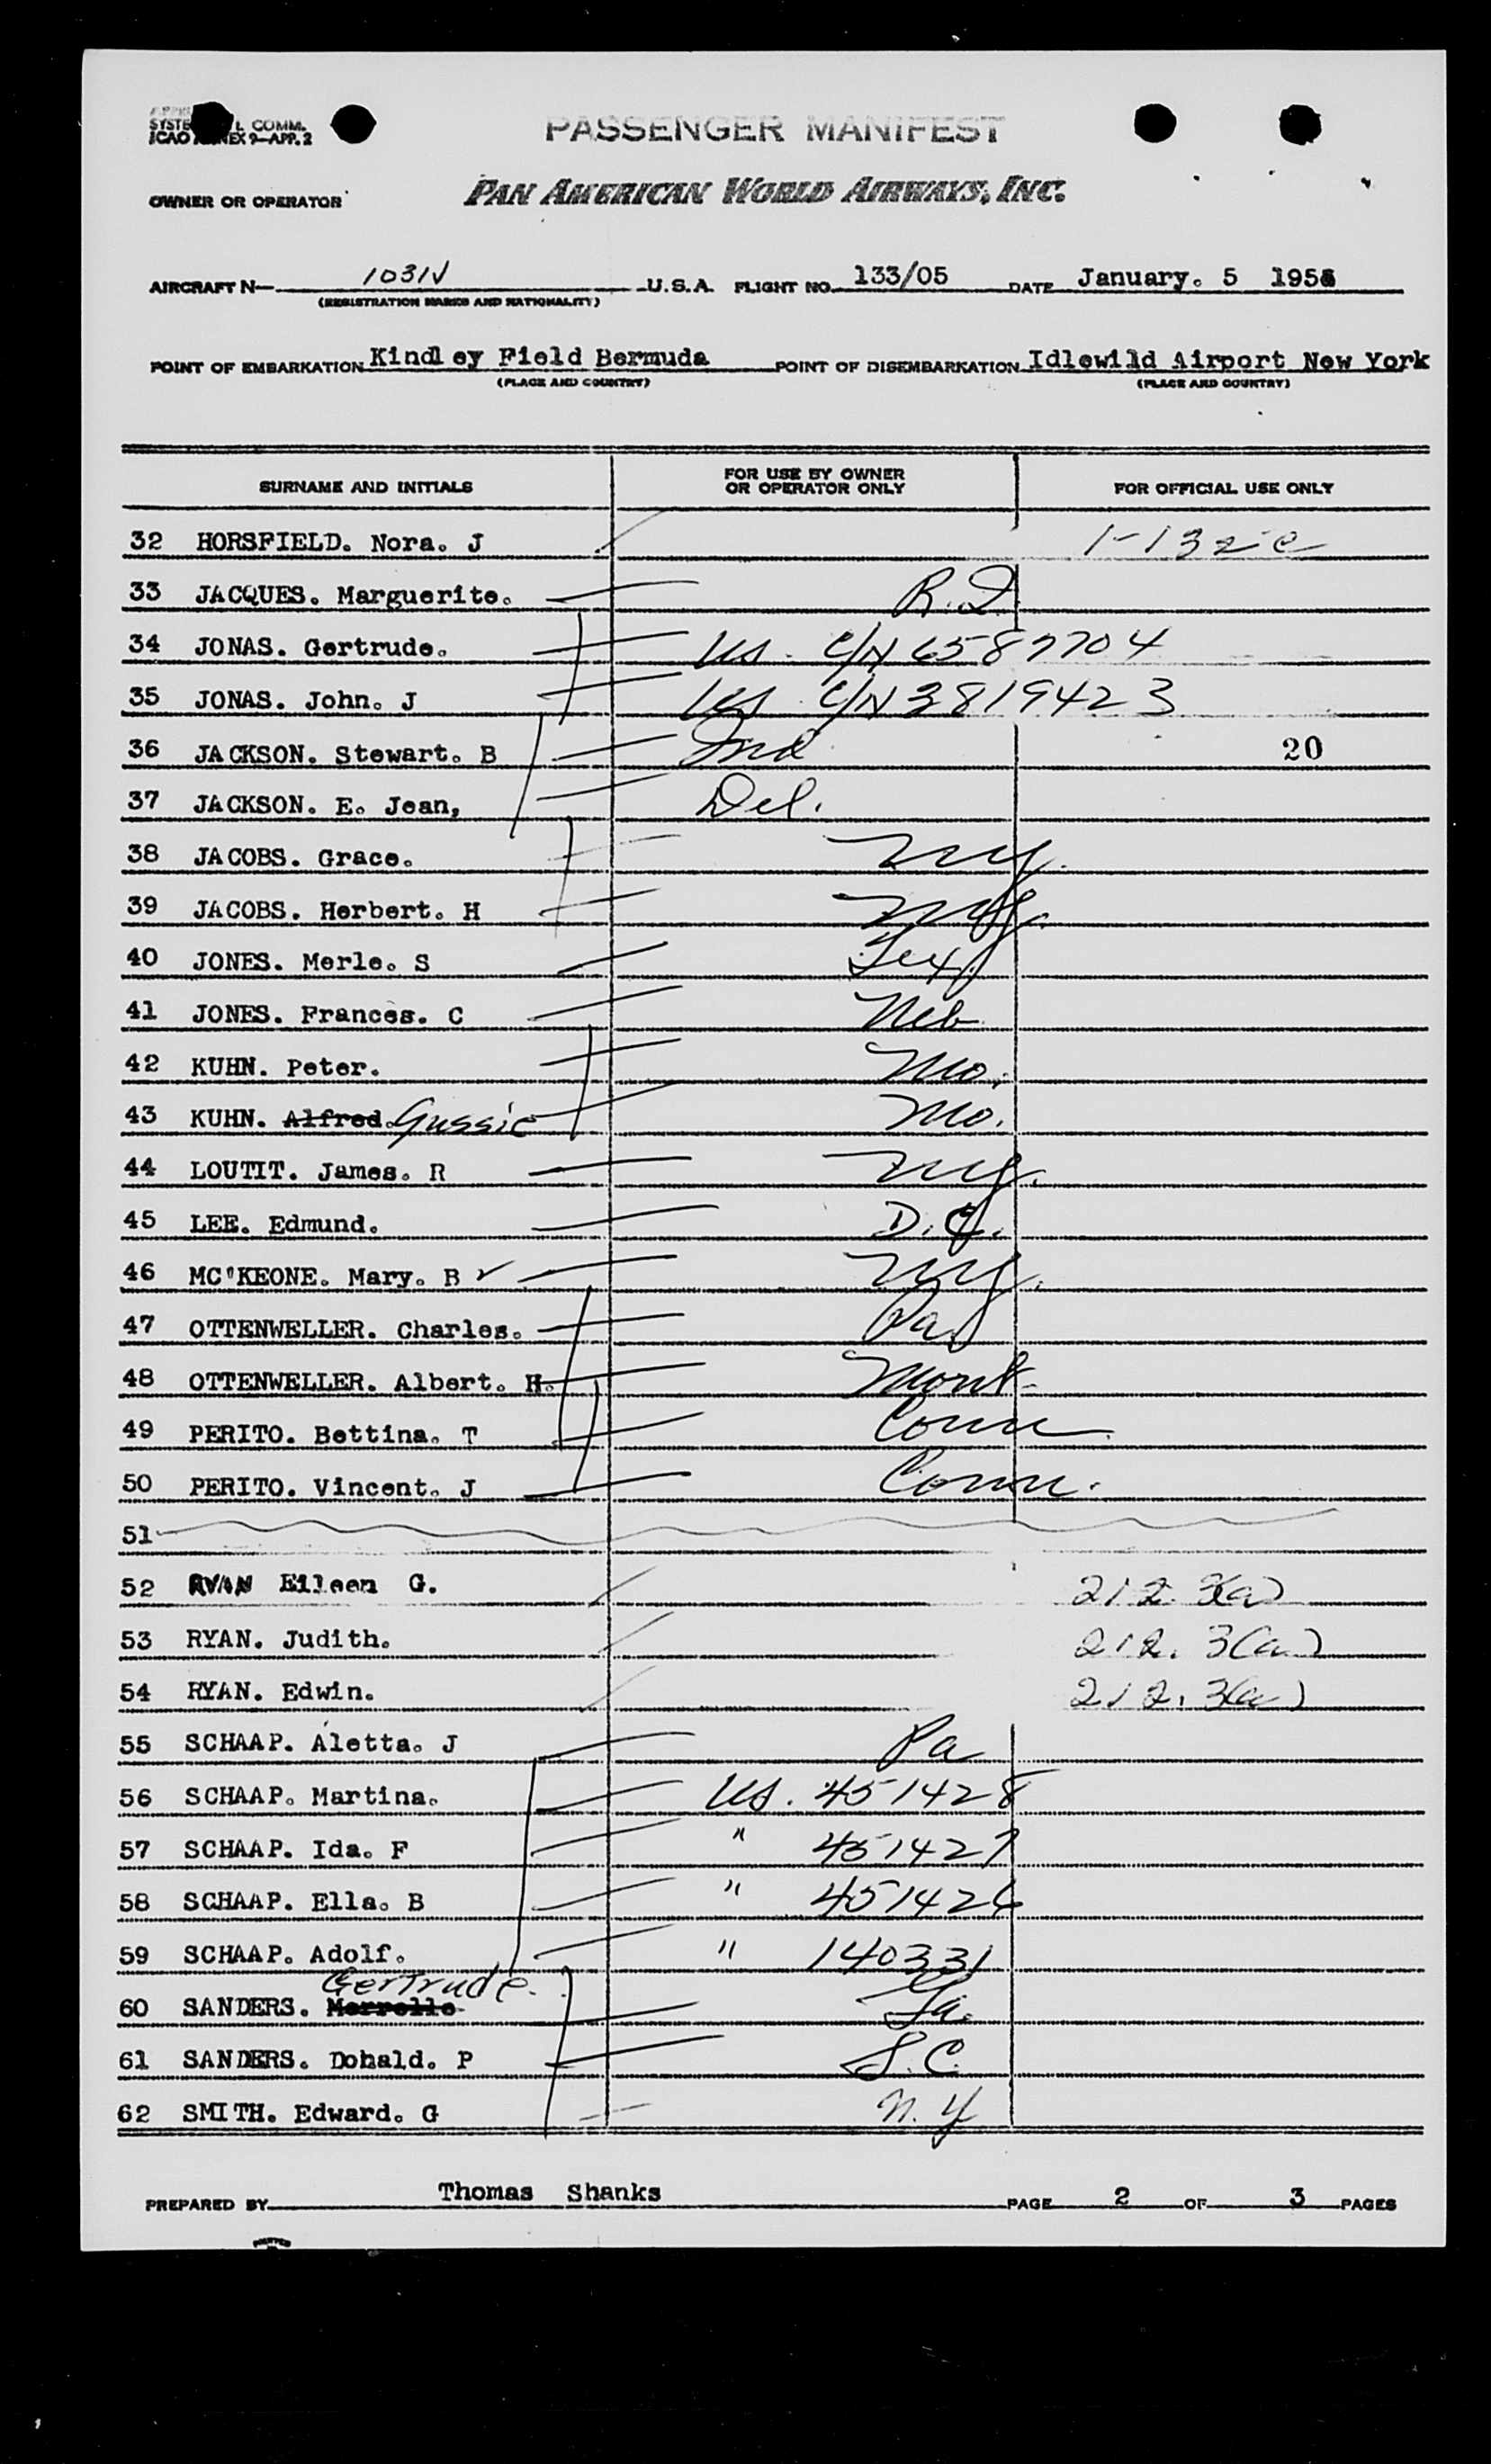 SYSTE L COMM.
ICAO NEX 9—APP. 2
PASSENGER MANIFEST
OWNER OR OPERATOR PAN AMERICAN WORLD AIRWAYS, INC.
AIRCRAFT N— 1031V U.S.A. FLIGHT NO. 133/05 DATE January. 5 1956
(REGISTRATION MARKS AND NATIONALITY)
POINT OF EMBARKATION Kindley Field Bermuda POINT OF DISEMBARKATION Idlewild Airport New York
(PLACE AND COUNTRY) (PLACE AND COUNTRY)
SURNAME AND INITIALS FOR USE BY OWNER OR OPERATOR ONLY FOR OFFICIAL USE ONLY
32 HORSFIELD. Nora. J 1-132-e
33 JACQUES. Marguerite. R.I.
34 JONAS. Gertrude. US. C/N 6587704
35 JONAS. John. J US C/N 3819423
36 JACKSON. Stewart. B Ind 20
37 JACKSON. E. Jean, Del.
38 JACOBS. Grace. NY.
39 JACOBS. Herbert. H NY.
40 JONES. Merle. S Tex.
41 JONES. Frances. C Neb
42 KUHN. Peter. Mo.
43 KUHN. Alfred. Gussie Mo.
44 LOUTIT. James. R NY.
45 LEE. Edmund. D.C.
46 MC'KEONE. Mary. B ✓ NY.
47 OTTENWELLER. Charles. Pa
48 OTTENWELLER. Albert. H. Mont-
49 PERITO. Bettina. T Conn
50 PERITO. Vincent. J Conn.
51
52 RYAN Eileen G. 212.3(a)
53 RYAN. Judith. 212.3(a)
54 RYAN. Edwin. 212.3(a)
55 SCHAAP. Aletta. J Pa
56 SCHAAP. Martina. US. 451428
57 SCHAAP. Ida. F " 451427
58 SCHAAP. Ella. B " 451426
59 SCHAAP. Adolf. " 140331
Gertrude.
60 SANDERS. Merrelle Ga.
61 SANDERS. Donald. P S.C.
62 SMITH. Edward. G N.Y
PREPARED BY Thomas Shanks PAGE 2 OF 3 PAGES